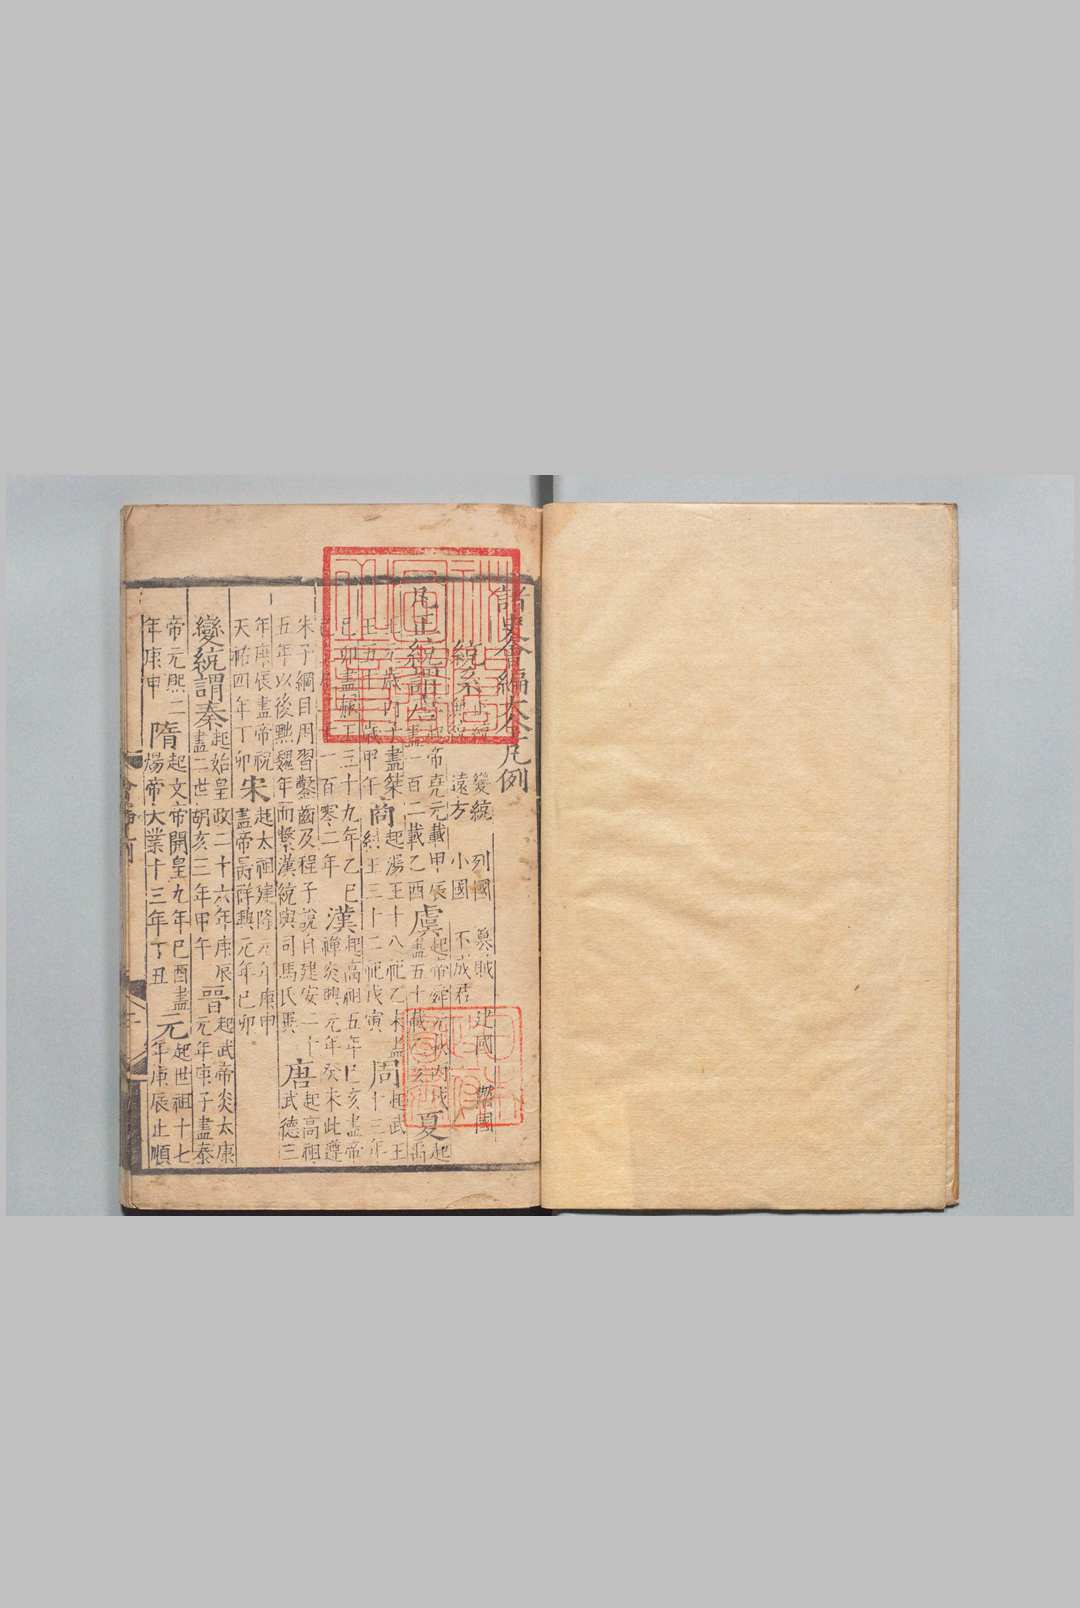 諸史會編大全凡例
統系 正統 變統 列國 簒賊 建國
遠方 小國 不成君
凡正統謂唐起帝堯元載甲辰 虞起帝舜元載丙戌 夏起
盡一百二載乙酉 盡五十載 禹
元歲丙子盡桀 商起湯王十八祀乙未盡 周起武王
壬五十二歲甲午 紂王三十二祀戊寅 十三年
己卯盡赧王三十九年乙巳 漢起高祖五年己亥盡帝
一百零二年 禪炎興元年癸未此遵
朱子綱目周習鑿齒及程子說自建安二十 唐起高祖
五年以後黜魏年而繫漢統與司馬氏異 武德三
年庚辰盡帝祝 宋起太祖建隆元年庚申
天祐四年丁卯 盡帝昺祥興元年己卯
變統謂秦起始皇政二十六年庚辰 晉起武帝炎太康
盡二世胡亥三年甲午 元年庚子盡泰
帝元熙二 隋起文帝開皇九年己酉盡 元起世祖十七
年庚申 煬帝大業十三年丁丑 年庚辰止順